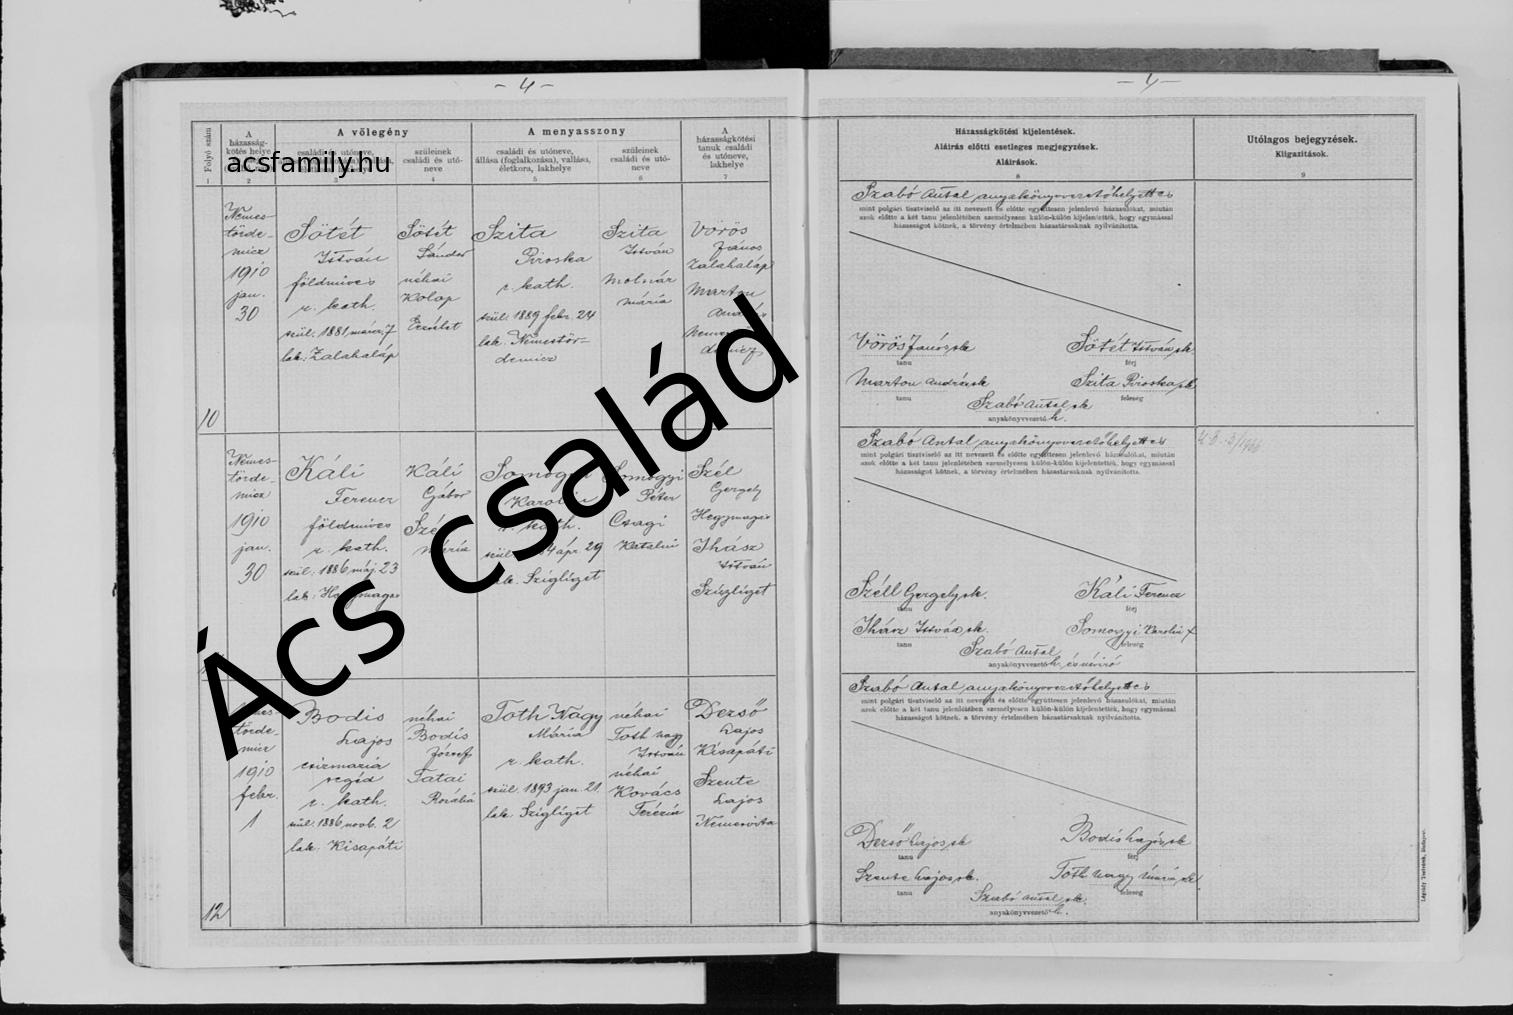 - 4 -
- 4 -
Folyó szám
A
házasság-
kötés helye
A völegény
családi és utóneve,
szüleinek
családi és utó-
neve
A menyasszony
családi és utóneve,
állása (foglalkozása), vallása,
életkora, lakhelye
szüleinek
családi és utó-
neve
A
házasságkötési
tanuk családi
és utóneve,
lakhelye
1 2 3 4 5 6 7
acsfamily.hu
Ács család
Nemes-
törde-
micz
1910
jan.
30
10
Sötét
István
földmives
r. kath.
szül. 1881 márcz. 7
lak: Zalahaláp
Sötét
Sándor
néhai
Kolop
Erzsébet
Szita
Piroska
r. kath.
szül. 1889 febr. 24
lak. Nemestör-
demicz
Szita
István
Molnár
Mária
Vörös
János
Zalahaláp
Marton
András
Nemestör-
demicz
Nemes-
törde-
micz
1910
jan.
30
Káli
Ferencz
földmives
r. kath.
szül. 1886 máj. 23
lak: Hegymagas
Káli
Gábor
Mária
Somogyi
Karolin
r. kath.
ápr 29
lak. Szigliget
Somogyi
Péter
Csagi
Katalin
Szél
Gergely
Hegymagas
Ihász
István
Szigliget
törde-
micz
1910
febr.
1
12
Bodis
Lajos
csizmadia
segéd
r. kath.
szül. 1886 novb. 2
lak: Kisapáti
néhai
Bodis
József
Tatai
Rozália
Tóth Nagy
Mária
r. kath.
szül. 1893 jan. 21.
lak. Szigliget
néhai
Tóth Nagy
István
néhai
Kovács
Terézia
Dezső
Lajos
Kisapáti
Szente
Lajos
Nemesvita
Házasságkötési kijelentések.
Aláirás előtti esetleges megjegyzések.
Aláirások.
8
Utólagos bejegyzések.
Kiigazitások.
9
Szabó Antal anyakönyvvezetőhelyettes
mint polgári tisztviselő az itt nevezett és előtte együttesen jelenlevő házasulókat, miután
azok előtte a két tanu jelenlétében személyesen külön-külön kijelentették, hogy egymással
házasságot kötnek, a törvény értelmében házastársaknak nyilvánitotta.
Vörös János sk Sötét István sk.
tanu férj
Marton András sk Szita Piroska sk
tanu feleség
Szabó Antal sk
anyakönyvvezető h.
Szabó Antal anyakönyvvezetőhelyettes
mint polgári tisztviselő az itt nevezett és előtte együttesen jelenlevő házasulókat, miután
azok előtte a két tanu jelenlétében személyesen külön-külön kijelentették, hogy egymással
házasságot kötnek, a törvény értelmében házastársaknak nyilvánitotta.
Széll Gergely sk. Káli Ferencz
tanu férj
Ihász István sk. Somogyi Karolin
tanu feleség
Szabó Antal
anyakönyvvezető h. és névíró
Szabó Antal anyakönyvvezetőhelyettes
mint polgári tisztviselő az itt nevezett és előtte együttesen jelenlevő házasulókat, miután
azok előtte a két tanu jelenlétében személyesen külön-külön kijelentették, hogy egymással
házasságot kötnek, a törvény értelmében házastársaknak nyilvánitotta.
Dezső Lajos sk Bodis Lajos sk
tanu férj
Szente Lajos sk. Tóth Nagy Mária sk
tanu feleség
Szabó Antal sk.
anyakönyvvezető h.